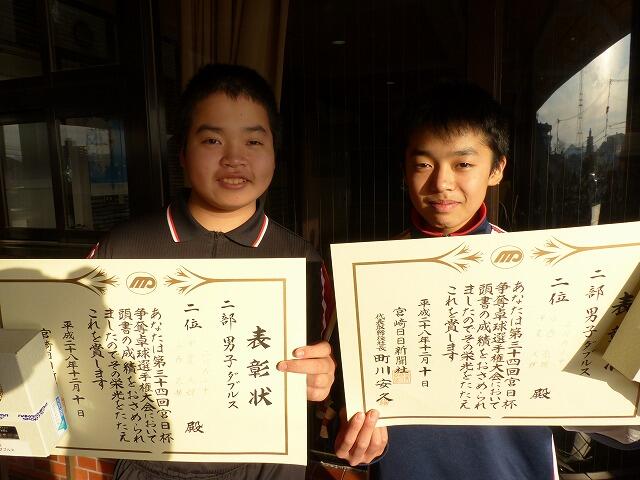 表彰状
二部 男子ダブルス
二位
殿
あなたは第三十四回宮日杯
争奪卓球選手権大会において
頭書の成績をおさめられ
ましたのでその栄光をたたえ
これを賞します
平成二十八年十二月十日
宮崎日
二部 男子ダブルス
二位
殿
あなたは第三十四回宮日杯
争奪卓球選手権大会において
頭書の成績をおさめられ
ましたのでその栄光をたたえ
これを賞します
平成二十八年十二月十日
宮崎日日新聞社
代表取締役社長 町川安久